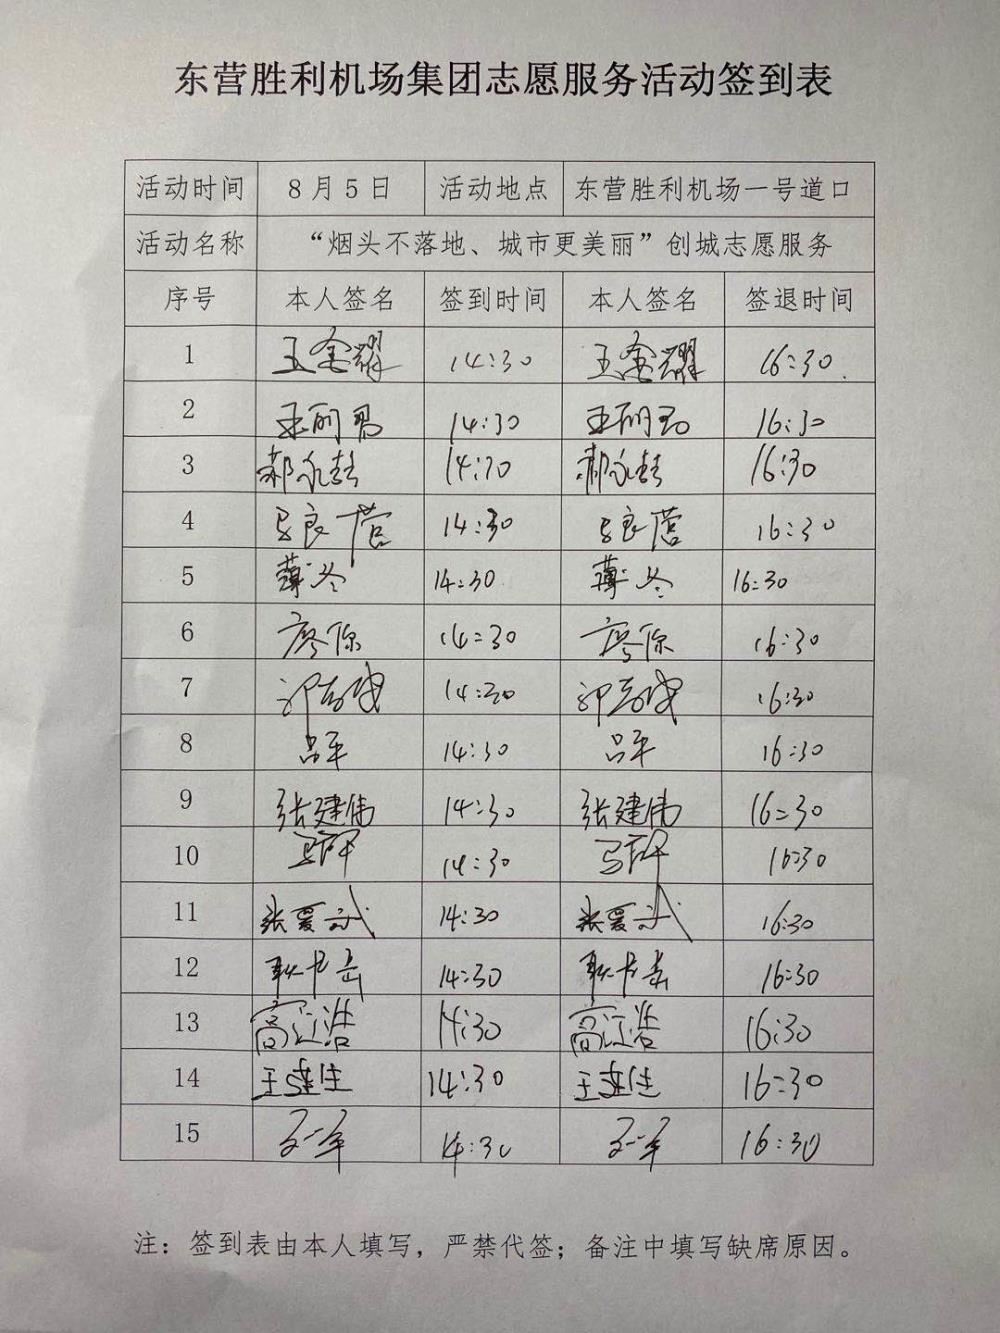 东营胜利机场集团志愿服务活动签到表
活动时间 8月5日 活动地点 东营胜利机场一号道口
活动名称 “烟头不落地、城市更美丽”创城志愿服务
序号 本人签名 签到时间 本人签名 签退时间
1 王金耀 14:30 王金耀 16:30
2 王丽君 14:30 王丽君 16:30
3 郝永彭 14:30 郝永彭 16:30
4 马良营 14:30 马良营 16:30
5 薄冬 14:30 薄冬 16:30
6 廖原 14:30 廖原 16:30
7 14:30 16:30
8 吕平 14:30 吕平 16:30
9 张建伟 14:30 张建伟 16:30
10 14:30 16:30
11 张爱武 14:30 张爱武 16:30
12 14:30 16:30
13 高江浩 14:30 高江浩 16:30
14 14:30 16:30
15 14:30 16:30
注：签到表由本人填写，严禁代签；备注中填写缺席原因。